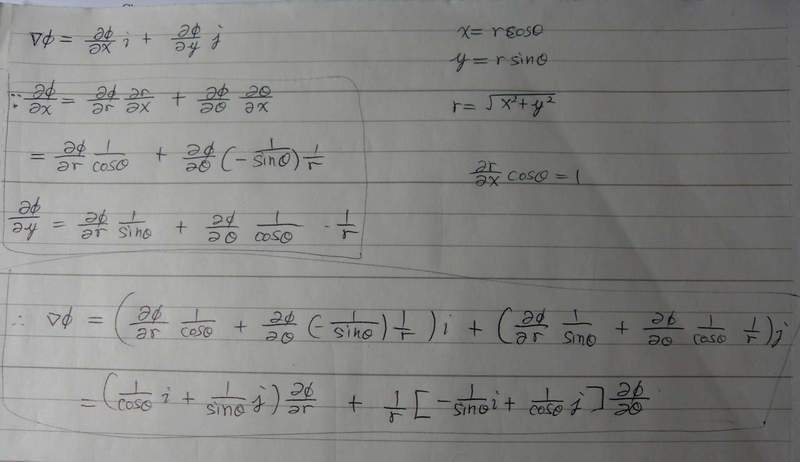 ∇φ = ∂φ/∂x i + ∂φ/∂y j
x = r cosθ
y = r sinθ
∵ ∂φ/∂x = ∂φ/∂r ∂r/∂x + ∂φ/∂θ ∂θ/∂x
r = √(x²+y²)
= ∂φ/∂r 1/cosθ + ∂φ/∂θ (-1/sinθ) 1/r
∂r/∂x cosθ = 1
∂φ/∂y = ∂φ/∂r 1/sinθ + ∂φ/∂θ 1/cosθ · 1/r
∴ ∇φ = (∂φ/∂r 1/cosθ + ∂φ/∂θ (-1/sinθ) 1/r) i + (∂φ/∂r 1/sinθ + ∂φ/∂θ 1/cosθ 1/r) j
= (1/cosθ i + 1/sinθ j) ∂φ/∂r + 1/r [-1/sinθ i + 1/cosθ j] ∂φ/∂θ